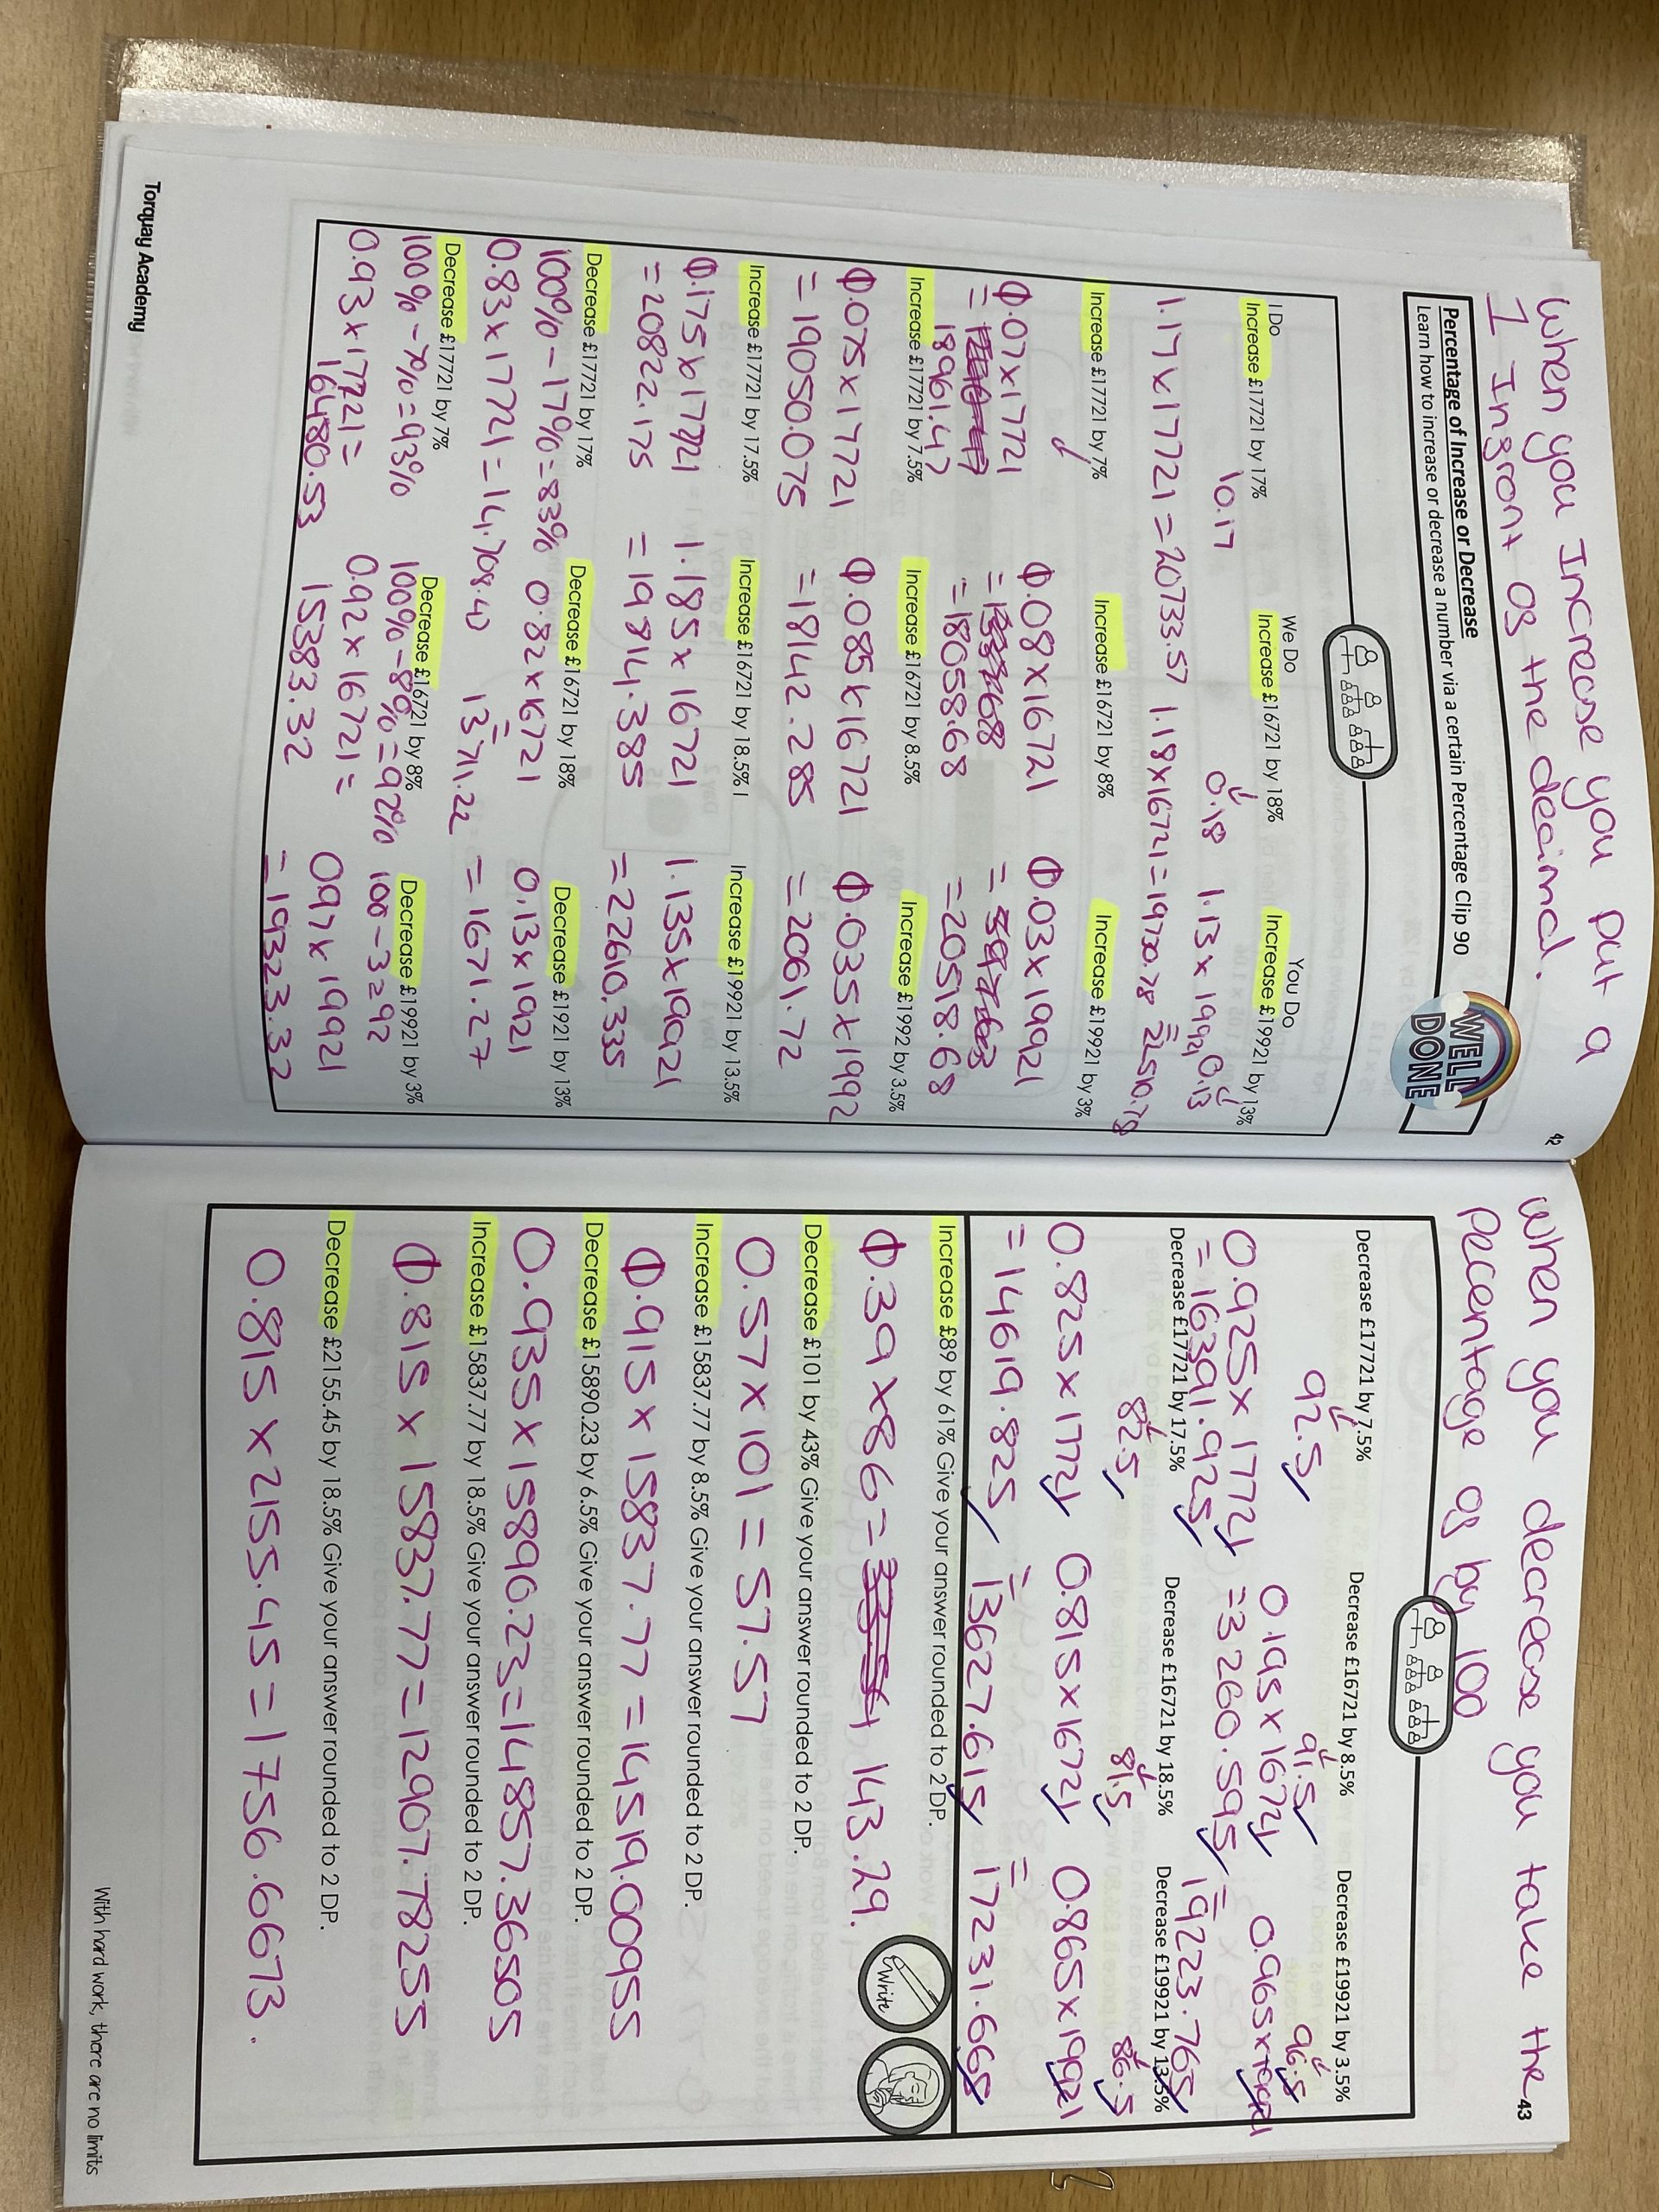 When you Increase you put a
1 Ingront og the decimal.
42
Percentage of Increase or Decrease
Learn how to increase or decrease a number via a certain Percentage Clip 90
WELL
DONE
I Do
We Do
You Do
Increase £17721 by 17%
Increase £16721 by 18%
Increase £19921 by 13%
10.17
0.18
0.13
1.17 x 17721 = 20733.57
1.18 x 16721 = 19730.78
1.13 x 19921
= 22510.78
Increase £17721 by 7%
Increase £16721 by 8%
Increase £19921 by 3%
0.07 x 17721
0.08 x 16721
0.03 x 19921
= 18961.47
= 18058.68
= 20518.68
Increase £17721 by 7.5%
Increase £16721 by 8.5%
Increase £1992 by 3.5%
0.075 x 17721
0.085 x 16721
0.035 x 1992
= 19050.075
= 18142.285
= 2061.72
Increase £17721 by 17.5%
Increase £16721 by 18.5%
Increase £19921 by 13.5%
0.175 x 17721
1.185 x 16721
1.135 x 19921
= 20822.175
= 19814.385
= 22610.335
Decrease £17721 by 17%
Decrease £16721 by 18%
Decrease £1921 by 13%
100% - 17% = 83%
0.82 x 16721
0.13 x 1921
0.83 x 17721 = 14,708.40
= 13711.22
= 1671.27
Decrease £17721 by 7%
Decrease £16721 by 8%
Decrease £19921 by 3%
100% - 7% = 93%
100% - 8% = 92%
100 - 3 = 97
0.93 x 17721 =
0.92 x 16721 =
0.97 x 19921
16480.53
15383.32
= 19323.32
Torquay Academy
When you decrease you take the
43
Pecentage og by 100
Decrease £17721 by 7.5%
Decrease £16721 by 8.5%
Decrease £19921 by 3.5%
92.5
91.5
96.5
0.925 x 17721
0.195 x 16721
0.965 x 19921
= 16391.925
= 3260.595
= 19223.765
Decrease £17721 by 17.5%
Decrease £16721 by 18.5%
Decrease £19921 by 13.5%
82.5
81.5
86.5
0.825 x 17721
0.815 x 16721
0.865 x 19921
= 14619.825
= 13627.615
= 17231.665
Increase £89 by 61% Give your answer rounded to 2 DP.
0.39 x 86 = 143.29.
Write
Decrease £101 by 43% Give your answer rounded to 2 DP.
0.57 x 101 = 57.57
Increase £15837.77 by 8.5% Give your answer rounded to 2 DP.
0.915 x 15837.77 = 14519.00955
Decrease £15890.23 by 6.5% Give your answer rounded to 2 DP.
0.935 x 15890.23 = 14857.36505
Increase £15837.77 by 18.5% Give your answer rounded to 2 DP.
0.815 x 15837.77 = 12907.78255
Decrease £2155.45 by 18.5% Give your answer rounded to 2 DP.
0.815 x 2155.45 = 1756.6673.
With hard work, there are no limits